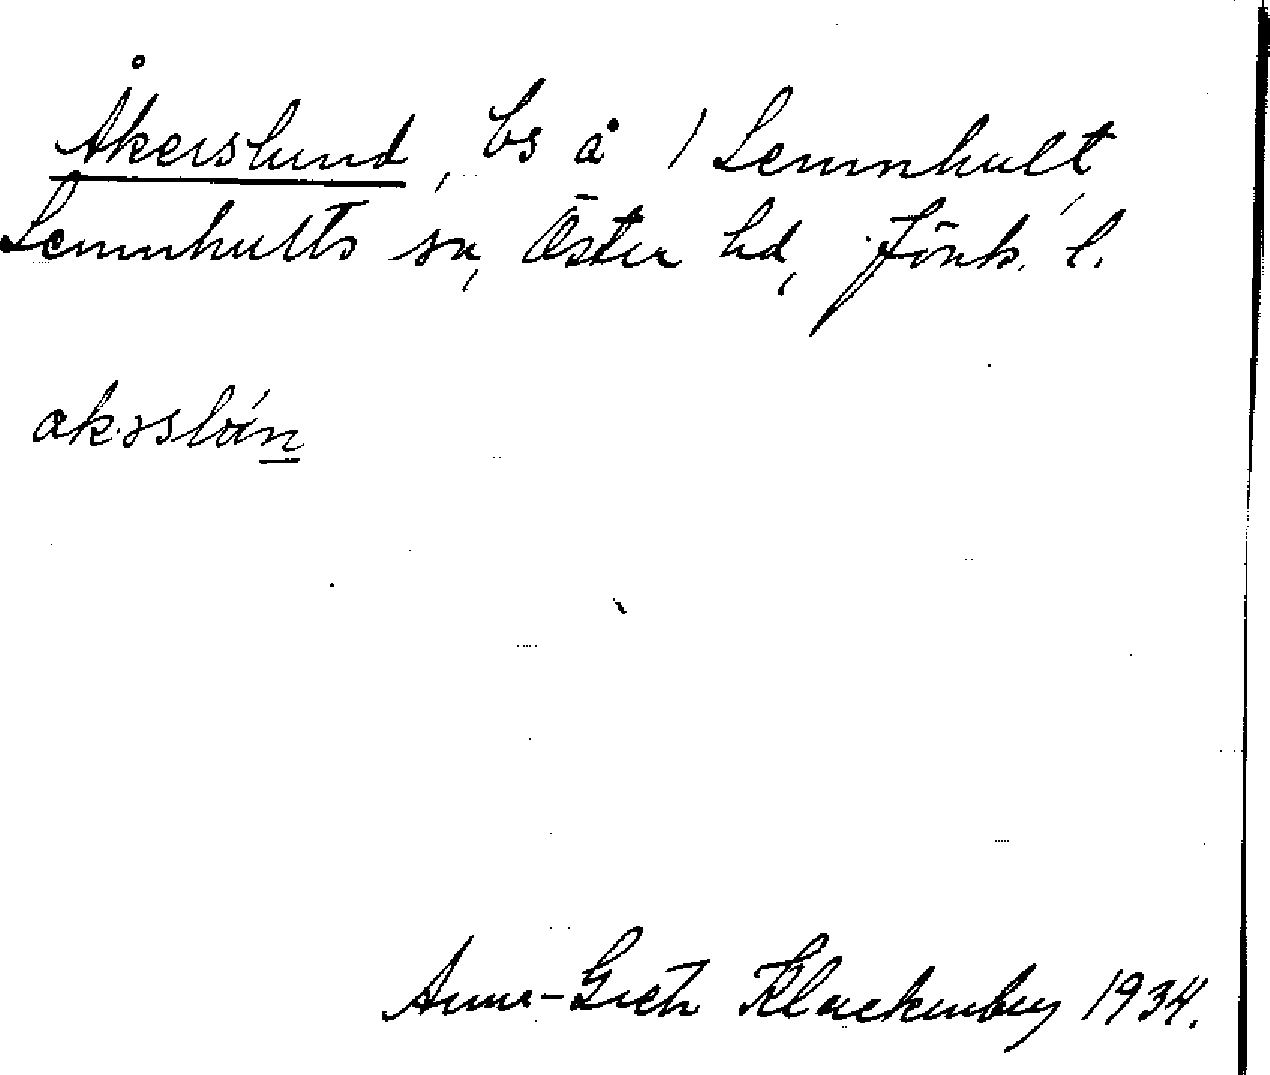 Åkerslund, bs å 1 Lemnhult,
Lemnhults sn, Öster hd, Jönk. l.
akəslón
Anna-Greta Klackenberg 1934.